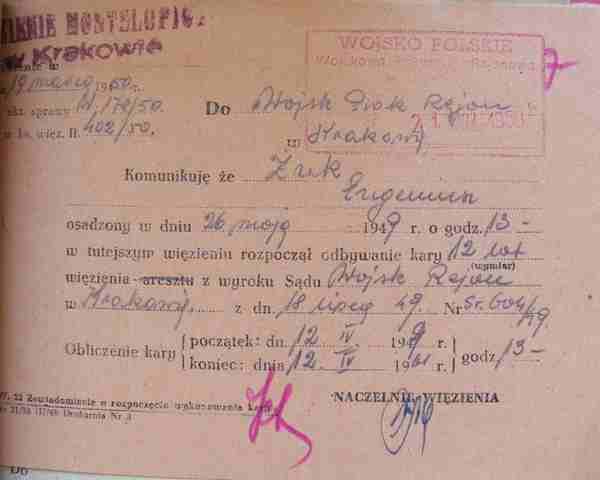 MONTELUPICH
w Krakowie
WOJSKO POLSKIE
Wojskowa Rejonowa
19 marca 1950 r.
akt. sprawy W. 170/50.
w ks. więź. II. 402/50.
Do Wojsk Prok Rejon
w Krakowie
Komunikuję że Żuk
Eugeniusz
osadzony w dniu 26 maja 1949 r. o godz. 13-
w tutejszym więzieniu rozpoczął odbywanie kary 12 lat
(wymiar)
więzienia aresztu z wyroku Sądu Wojsk Rejon
w Krakowie z dn. 18 lipca 49. Nr Sr. 604/49.
Obliczenie kary
początek: dn. 12 IV 1949 r.
koniec: dnia 12 IV 1961 r.
godz. 13-
NACZELNIK WIĘZIENIA
W. 22 Zawiadomienie o rozpoczęciu wykonywania kary
Drukarnia Nr 3
Do